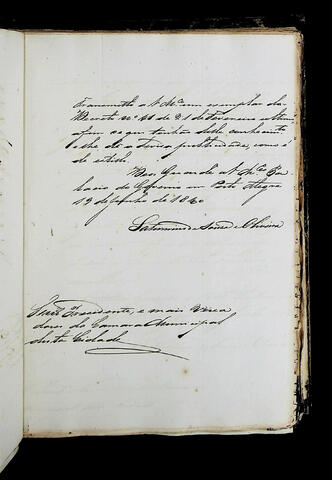 Transmitto a V. Mces um exemplar da
Decreto nº 41 de 21 de Fevereiro ultimo
afim de que tenhão delle conhecimento
e lhe dê a devida publicidade, como é
de estilo.
Deos Guarde a V. Mces Pa-
lacio do Governo em Porto Alegre
13 de Junho de 1840
Saturnino de Souza e Oliveira
Snrs. Presidente, e mais Verea
dores da Camara Municipal
desta Cidade